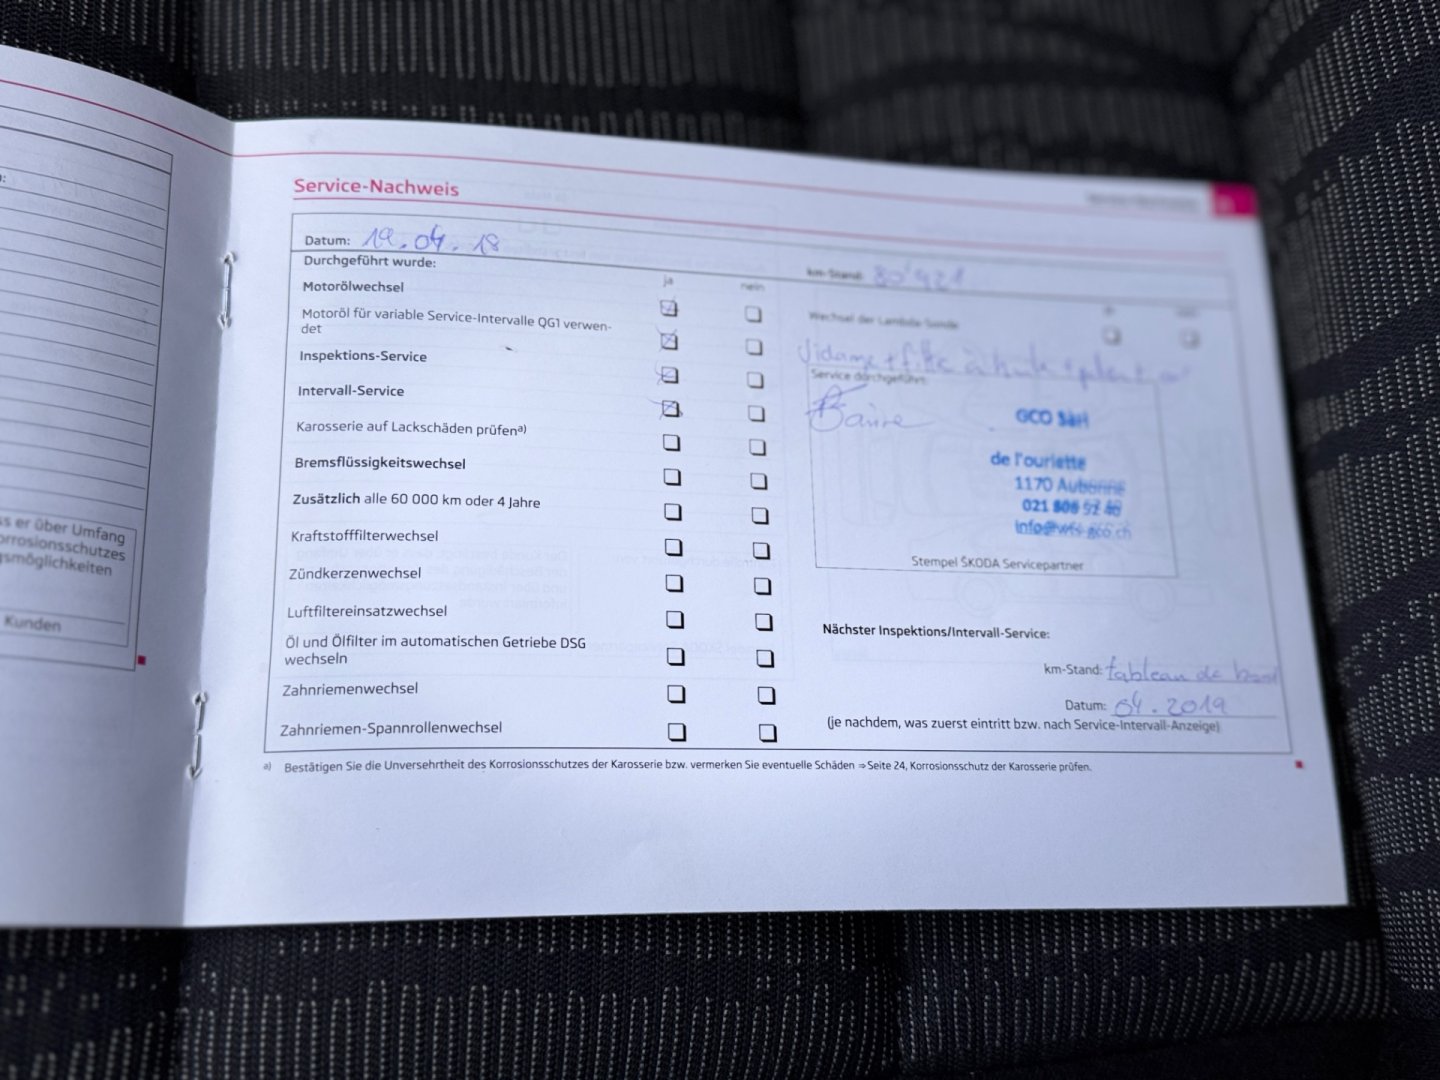 :
ss er über Umfang
orrosionsschutzes
gsmöglichkeiten
Kunden
Service-Nachweis
Datum: 19.04.18
km-Stand: 80'421
Durchgeführt wurde:
ja nein
Motorölwechsel
Motoröl für variable Service-Intervalle QG1 verwen-
det
Inspektions-Service
Intervall-Service
Karosserie auf Lackschäden prüfen a)
Bremsflüssigkeitswechsel
Zusätzlich alle 60 000 km oder 4 Jahre
Kraftstofffilterwechsel
Zündkerzenwechsel
Luftfiltereinsatzwechsel
Öl und Ölfilter im automatischen Getriebe DSG
wechseln
Zahnriemenwechsel
Zahnriemen-Spannrollenwechsel
Wechsel der Lambda-Sonde
Vidange + filtre à huile +
Service durchgeführt:
GCO Sàrl
de l'ouriette
1170 Aubonne
021 808 52 40
Stempel ŠKODA Servicepartner
Nächster Inspektions/Intervall-Service:
km-Stand: tableau de bord
Datum: 04.2019
(je nachdem, was zuerst eintritt bzw. nach Service-Intervall-Anzeige)
a) Bestätigen Sie die Unversehrtheit des Korrosionsschutzes der Karosserie bzw. vermerken Sie eventuelle Schäden ⇒ Seite 24, Korrosionsschutz der Karosserie prüfen.